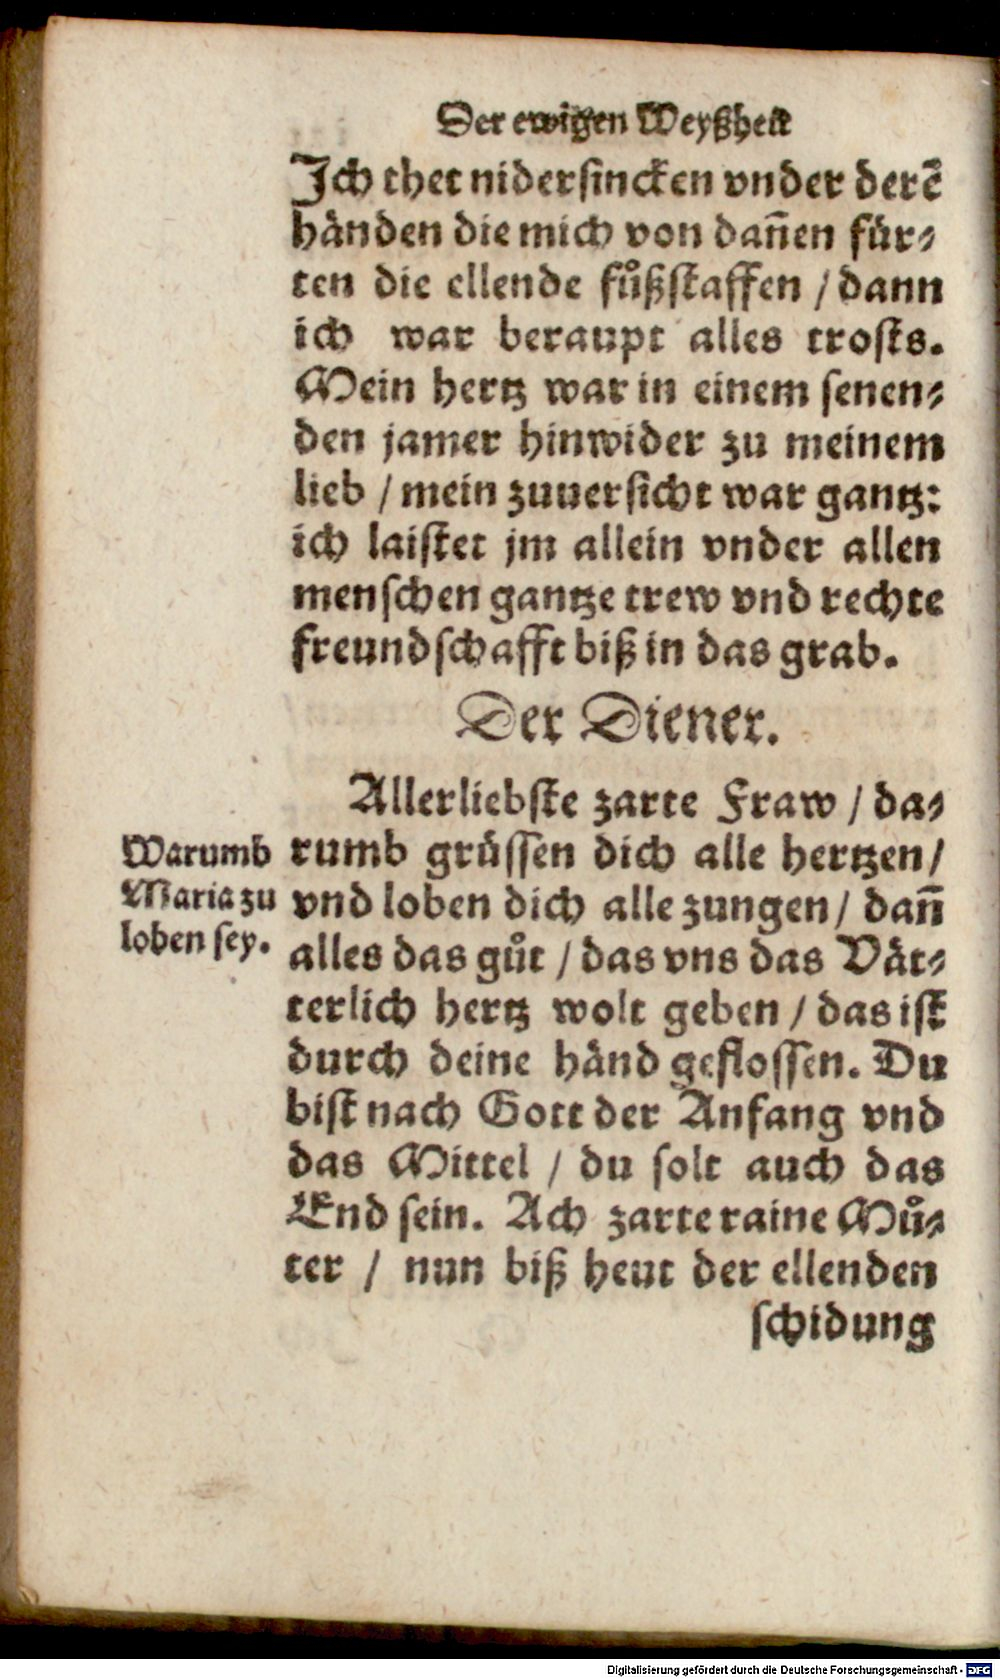 Der ewigen Weyßheit
Ich thet nidersincken vnder derē
händen die mich von dañen für⸗
ten die ellende fůßstaffen / dann
ich war beraupt alles trosts.
Mein hertz war in einem senen⸗
den jamer hinwider zu meinem
lieb / mein zuuersicht war gantz:
ich laistet jm allein vnder allen
menschen gantze trew vnd rechte
freundschafft biß in das grab.
Der Diener.
Allerliebste zarte Fraw / da⸗
rumb grüssen dich alle hertzen /
vnd loben dich alle zungen / dañ
alles das gůt / das vns das Vät⸗
terlich hertz wolt geben / das ist
durch deine händ geflossen. Du
bist nach Gott der Anfang vnd
das Mittel / du solt auch das
End sein. Ach zarte raine Mů⸗
ter / nun biß heut der ellenden
schidung
Warumb
Maria zu
loben sey.
Digitalisierung gefördert durch die Deutsche Forschungsgemeinschaft - DFG